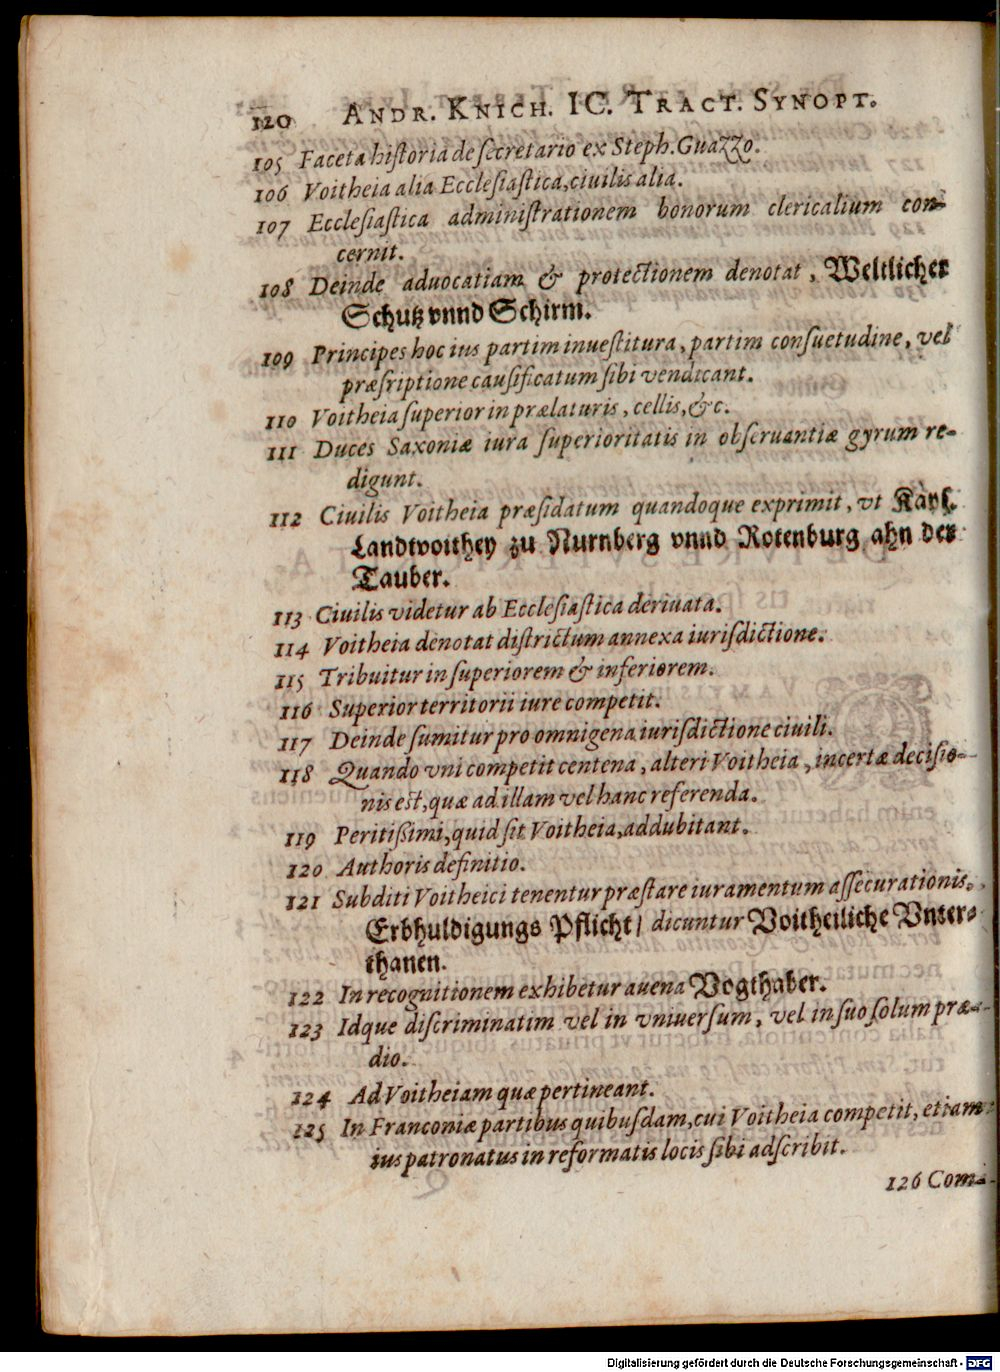 120 ANDR. KNICH. IC. TRACT. SYNOPT.
105 Faceta historia de secretario ex Steph. Guazzo.
106 Voitheia alia Ecclesiastica, ciuilis alia.
107 Ecclesiastica administrationem bonorum clericalium con-
cernit.
108 Deinde aduocatiam & protectionem denotat, Weltlicher
Schutz vnnd Schirm.
109 Principes hoc ius partim inuestitura, partim consuetudine, vel
præsriptione causificatum sibi vendicant.
110 Voitheia superior in prælaturis, cellis, &c.
111 Duces Saxoniæ iura superioritatis in obseruantiæ gyrum re-
digunt.
112 Ciuilis Voitheia præsidatum quandoque exprimit, vt Käys.
Landtvoithey zu Nurnberg vnnd Rotenburg ahn der
Tauber.
113 Ciuilis videtur ab Ecclesiastica deriuata.
114 Voitheia denotat districtum annexa iurisdictione.
115 Tribuitur in superiorem & inferiorem.
116 Superior territorii iure competit.
117 Deinde sumitur pro omnigena iurisdictione ciuili.
118 Quando vni competit centena, alteri Voitheia, incertæ decisio-
nis est, quæ ad illam vel hanc referenda.
119 Peritißimi, quid sit Voitheia, addubitant.
120 Authoris definitio.
121 Subditi Voitheici tenentur præstare iuramentum assecurationis,
Erbhuldigungs Pflicht/ dicuntur Voitheiliche Vnter-
thanen.
122 In recognitionem exhibetur auena Vogthaber.
123 Idque discriminatim vel in vniuersum, vel in suo solum præ-
dio.
124 Ad Voitheiam quæ pertineant.
125 In Franconiæ partibus quibusdam, cui Voitheia competit, etiam
ius patronatus in reformatis locis sibi adscribit.
126 Com-
Digitalisierung gefördert durch die Deutsche Forschungsgemeinschaft - DFG